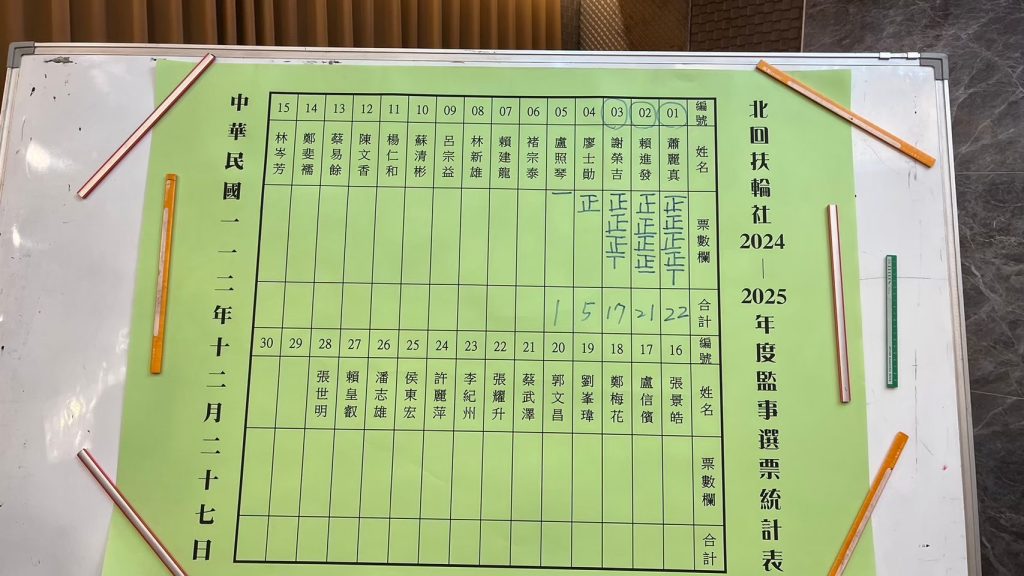 北回扶輪社2024—2025年度監事選票統計表
編號 姓名 票數欄 合計
01 蕭麗真 正正正正丅 22
02 賴進發 正正正正一 21
03 謝榮吉 正正正丅 17
04 廖士勛 正 5
05 盧照琴 一 1
06 褚宗泰
07 賴建龍
08 林新雄
09 呂宗益
10 蘇清彬
11 楊仁和
12 陳文香
13 蔡易餘
14 鄭斐襦
15 林岑芳
編號 姓名 票數欄 合計
16 張景皓
17 盧信儐
18 鄭梅花
19 劉峯瑋
20 郭文昌
21 蔡武澤
22 張耀升
23 李紀州
24 許麗萍
25 侯東宏
26 潘志雄
27 賴皇叡
28 張世明
29
30
中華民國一一二年十二月二十七日